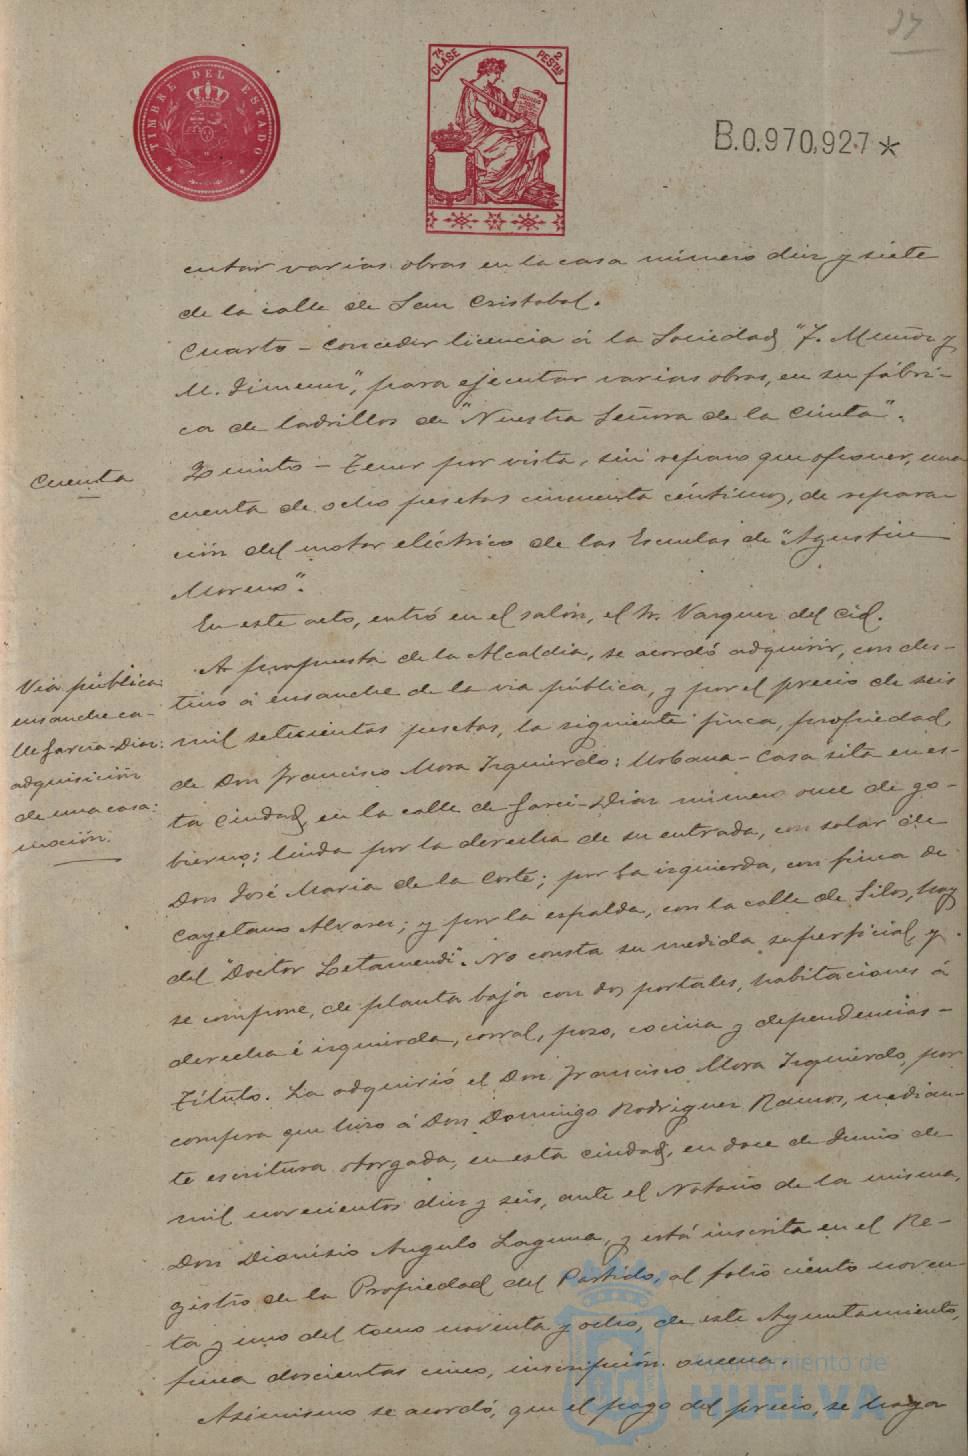 37
TIMBRE DEL ESTADO
7ª CLASE 2 PESTAS
B.0.970,927*
cutar varias obras en la casa número diez y siete
de la calle de San Cristobal.
Cuarto - Conceder licencia á la Sociedad "J. Muñoz y
M. Jimenez", para ejecutar varias obras, en su fábri-
ca de ladrillos de "Nuestra Señora de la Cinta".
Cuenta
Quinto - Tener por vista, sin reparo que oponer, una
cuenta de ocho pesetas cincuenta céntimos, de repara-
ción del motor eléctrico de las Escuelas de "Agustin
Moreno".
En este acto, entró en el salón, el Sr. Vazquez del Cid.
Via pública:
ensanche ca-
lle Garci-Diaz:
adquisición
de una casa:
moción.
A propuesta de la Alcaldia, se acordó adquirir, con des-
tino á ensanche de la via pública, y por el precio de seis
mil setecientas pesetas, la siguiente finca, propiedad,
de Don Francisco Mora Izquierdo: Urbana - Casa sita en es-
ta Ciudad, en la calle de Garci-Diaz número once de go-
bierno; linda por la derecha de su entrada, con solar de
Don José Maria de la Corte; por la izquierda, con finca de
Cayetano Alvarez; y por la espalda, con la calle de Silos, hoy
del "Doctor Letamendi". No consta su medida superficial, y
se compone, de planta baja con dos portales, habitaciones á
derecha é izquierda, corral, pozo, cocina y dependencias -
Título. La adquirió el Don Francisco Mora Izquierdo, por
compra que hizo á Don Domingo Rodriguez Ramos, median-
te escritura otorgada, en esta ciudad, en doce de Junio de
mil novecientos diez y seis, ante el Notario de la misma,
Don Dionisio Angulo Laguna, y está inscrita en el Re-
gistro de la Propiedad del Partido, al folio ciento noven-
ta y uno del tomo noventa y ocho, de este Ayuntamiento,
finca doscientas cinco, inscripción oncena.
Asimismo se acordó, que el pago del precio, se haga
Ayuntamiento de
HUELVA